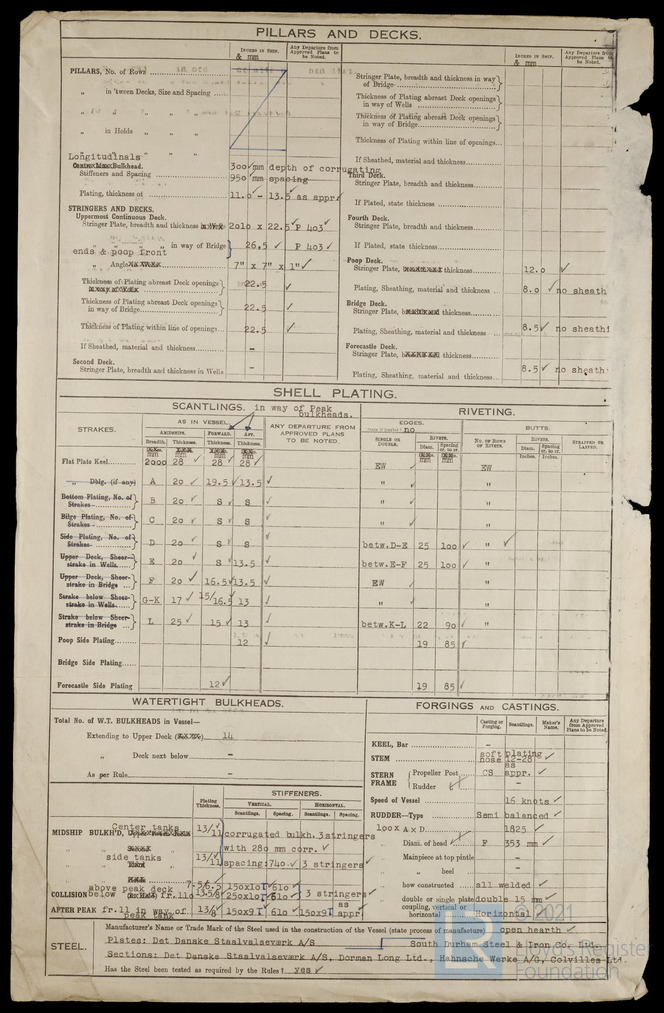 PILLARS AND DECKS.
INCHES IN SHIP. & mm
Any Departure from Approved Plans to be Noted.
INCHES IN SHIP. & mm
Any Departure from Approved Plans to be Noted.
PILLARS, No. of Rows
„ in 'tween Decks, Size and Spacing
„ „ „ „
„ in Holds „ „
„ „ „
Longitudinals
Bulkhead.
Stiffeners and Spacing 300 mm depth of corrugating
950 mm spacing
Plating, thickness of 11.0 - 13.5 as appr.
STRINGERS AND DECKS.
Uppermost Continuous Deck.
Stringer Plate, breadth and thickness 2010 x 22.5 P 403
„ „ in way of Bridge 26.5 P 403
ends & poop front
„ Angle 7" x 7" x 1"
Thickness of Plating abreast Deck openings 22.5
Thickness of Plating abreast Deck openings in way of Bridge 22.5
Thickness of Plating within line of openings 22.5
If Sheathed, material and thickness –
Second Deck.
Stringer Plate, breadth and thickness in Wells –
Stringer Plate, breadth and thickness in way of Bridge
Thickness of Plating abreast Deck openings in way of Wells
Thickness of Plating abreast Deck openings in way of Bridge
Thickness of Plating within line of openings
If Sheathed, material and thickness
Third Deck.
Stringer Plate, breadth and thickness
If Plated, state thickness
Fourth Deck.
Stringer Plate, breadth and thickness
If Plated, state thickness
Poop Deck.
Stringer Plate, thickness 12.0
Plating, Sheathing, material and thickness 8.0 no sheath
Bridge Deck.
Stringer Plate, thickness
Plating, Sheathing, material and thickness 8.5 no sheathi
Forecastle Deck.
Stringer Plate, thickness
Plating, Sheathing, material and thickness 8.5 no sheath
SHELL PLATING.
SCANTLINGS. in way of Peak bulkheads.
RIVETING.
STRAKES.
AS IN VESSEL.
AMIDSHIPS. FORWARD. AFT.
Breadth. Thickness. Thickness. Thickness.
ANY DEPARTURE FROM APPROVED PLANS TO BE NOTED.
EDGES. no
BUTTS.
SINGLE OR DOUBLE.
RIVETS.
Diam. Spacing cr. to cr.
No. OF ROWS OF RIVETS.
RIVETS.
Diam. Spacing cr. to cr.
Inches. Inches.
STRAPPED OR LAPPED.
mm mm mm mm mm mm
Flat Plate Keel 2000 28 28 28 EW EW
„ Dblg. (if any) A 20 19.5 13.5 " "
Bottom Plating, No. of Strakes B 20 S S " "
Bilge Plating, No. of Strakes C 20 S S " "
Side Plating, No. of Strakes D 20 S S betw.D-E 25 100 "
Upper Deck, Sheer-strake in Wells E 20 S 13.5 betw.E-F 25 100 "
Upper Deck, Sheer-strake in Bridge F 20 16.5 13.5 EW "
Strake below Sheer-strake in Wells G-K 17 15/16.5 13 " "
Strake below Sheer-strake in Bridge L 25 15 13 betw.K-L 22 90 "
Poop Side Plating 12 19 85
Bridge Side Plating
Forecastle Side Plating 12 19 85
WATERTIGHT BULKHEADS.
Total No. of W.T. BULKHEADS in Vessel—
Extending to Upper Deck 14
„ Deck next below –
As per Rule –
Plating Thickness.
STIFFENERS.
VERTICAL. HORIZONTAL.
Scantlings. Spacing. Scantlings. Spacing.
Center tanks
MIDSHIP BULKH'D, 13/11 corrugated bulkh. 3 stringers
with 280 mm corr.
side tanks 13/11 spacing:740 3 stringers
above peak deck 7-5/6.5 150x10 610
COLLISION below fr.110 13.5/8 250x10 610 3 stringers
AFTER PEAK fr.11 in way of peak tank 13/8 150x9 610 150x9 as appr.
FORGINGS AND CASTINGS.
Casting or Forging. Scantlings. Maker's Name. Any Departure from Approved Plans to be Noted.
KEEL, Bar –
STEM soft nose plating 12-28
STERN FRAME Propeller Post CS as appr.
Rudder
Speed of Vessel 16 knots
RUDDER—Type Semi balanced
100 x A x D 1825
„ Diam. of head F 353 mm
Mainpiece at top pintle –
„ heel –
how constructed all welded
double or single plate double 15 mm
coupling, vertical or horizontal Horizontal
STEEL.
Manufacturer's Name or Trade Mark of the Steel used in the construction of the Vessel (state process of manufacture) open hearth
Plates: Det Danske Staalvalseværk A/S South Durham Steel & Iron Co. Ltd.
Sections: Det Danske Staalvalseværk A/S, Dorman Long Ltd., Hahnsche Werke A/G, Colvilles Ltd.
Has the Steel been tested as required by the Rules? yes
© 2021
LR
Lloyd's Register
Foundation